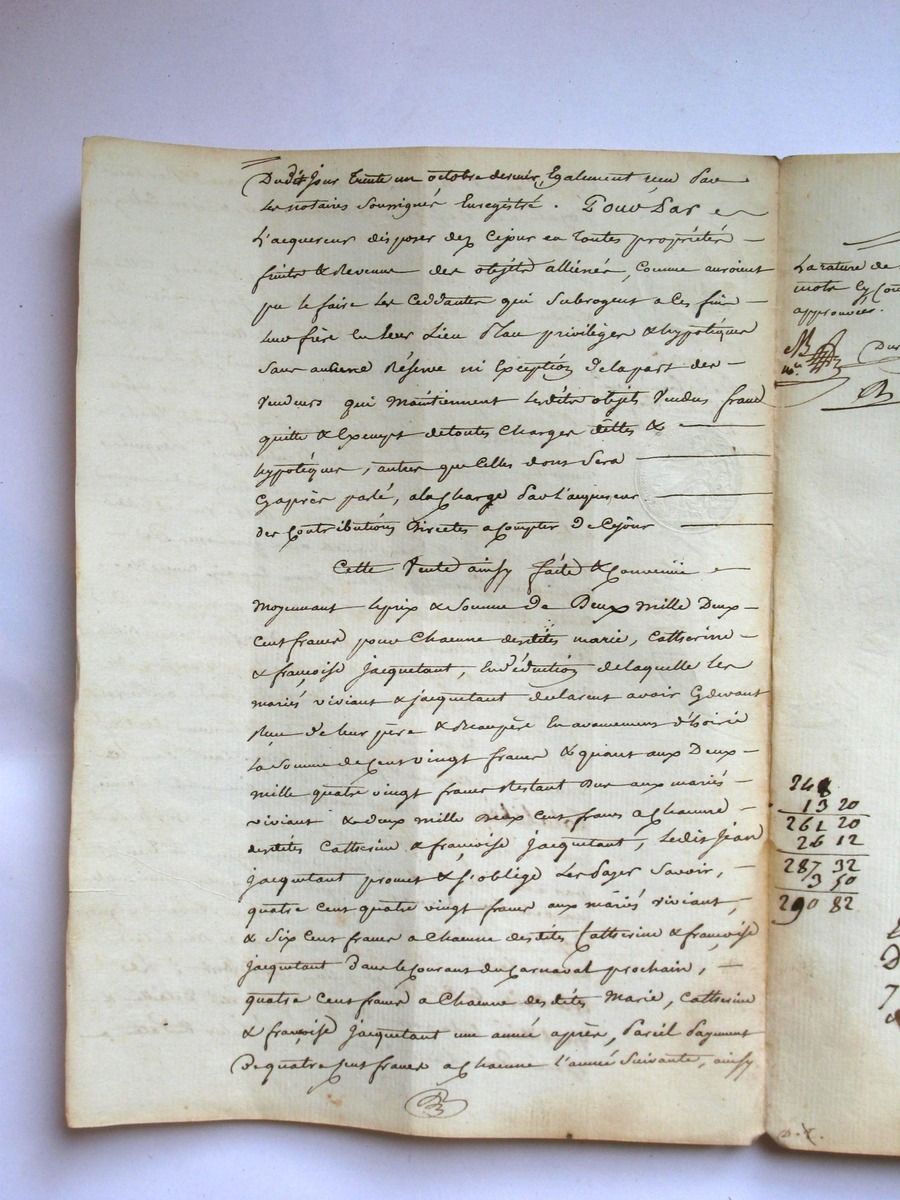 Dudit jour trente un octobre dernier, Egalement reçu par
les notaires soussignés Enregistré. Pour par
L'acquereur disposer dez cejour en toutes propriétés
fruits & Revenus des objets alliénés, comme auroient
pu le faire les Ceddantes qui subrogent a ces fins
leur frère en leur Lieu place privilèges & hypotèques
sans aucune Réserve ni Exception de la part des
vendeurs qui Maintiennent lesdits objets vendus franc
quitte & Exempt de toutes charges dettes &
hypotèques, autres que Celles dont sera
Cyaprès parlé, a la Charge par l'acquereur
des Contributions directes a Compter de Cejour
Cette Vente ainsy faite & Convenue
Moyennant leprix & Somme de Deux Mille Deux
Cent francs pour Chacune desdites marie, Catherine
& françoise Jacquetant, En déduction de laquelle les
mariés viviant & jacquetant declarent avoir Cydevant
Reçu de leur père & Beaupère En avancement d'hoirie
La Somme de Cent vingt francs & quant aux Deux
mille quatre vingt francs Restant Dus aux mariés
viviant & deux mille Deux Cent francs a Chacune
desdites Catherine & françoise Jacquetant, Ledit Jean
Jacquetant promet & s'oblige Les payer Savoir,
quatre cent quatre vingt francs aux mariés viviant,
& Six Cent francs a Chacune desdites Catherine & françoise
Jacquetant Dans le Courant du Carnaval prochain,
quatre Cent francs a Chacune desdites Marie, Catherine
& françoise Jacquetant une année après, Pareil Payment
De quatre Cent francs a Chacune l'année Suivante, ainsy
La rature de
mots cy
approuvée.
248
13 20
261 20
26 12
287 32
3 50
290 82